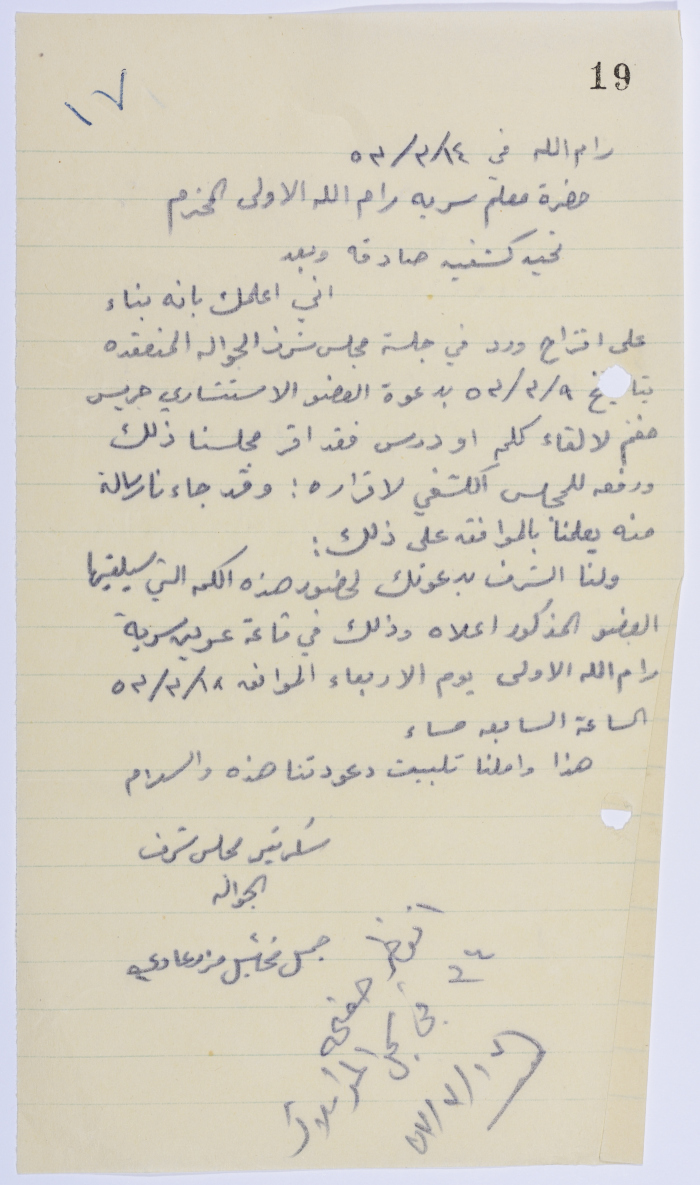 19
١٧
رام الله في ٥٣/٣/١٤
حضرة معلم سريه رام الله الاولى المحترم
تحيه كشفيه صادقه وبعد
اني اعلمك بانه بناء
على اقتراح ورد في جلسة مجلس شرف الجواله المنعقده
بتاريخ ٥٣/٣/٩ بدعوة العضو الاستشاري جريس
لالقاء كلمه او درس فقد اقر مجلسنا ذلك
ورفعه للمجلس الكشفي لاقراره : وقد جاءنا رسالة
منه يعلمنا بالموافقه على ذلك :
ولنا الشرف بدعوتك لحضور هذه الكلمه التي سيلقيها
العضو المذكور اعلاه وذلك في قاعة عرين سرية
رام الله الاولى يوم الاربعاء الموافق ٥٣/٣/١٨
الساعة السابعه مساء
هذا واملنا تلبيت دعوتنا هذه والسلام
سكرتير مجلس شرف
الجواله
جميل